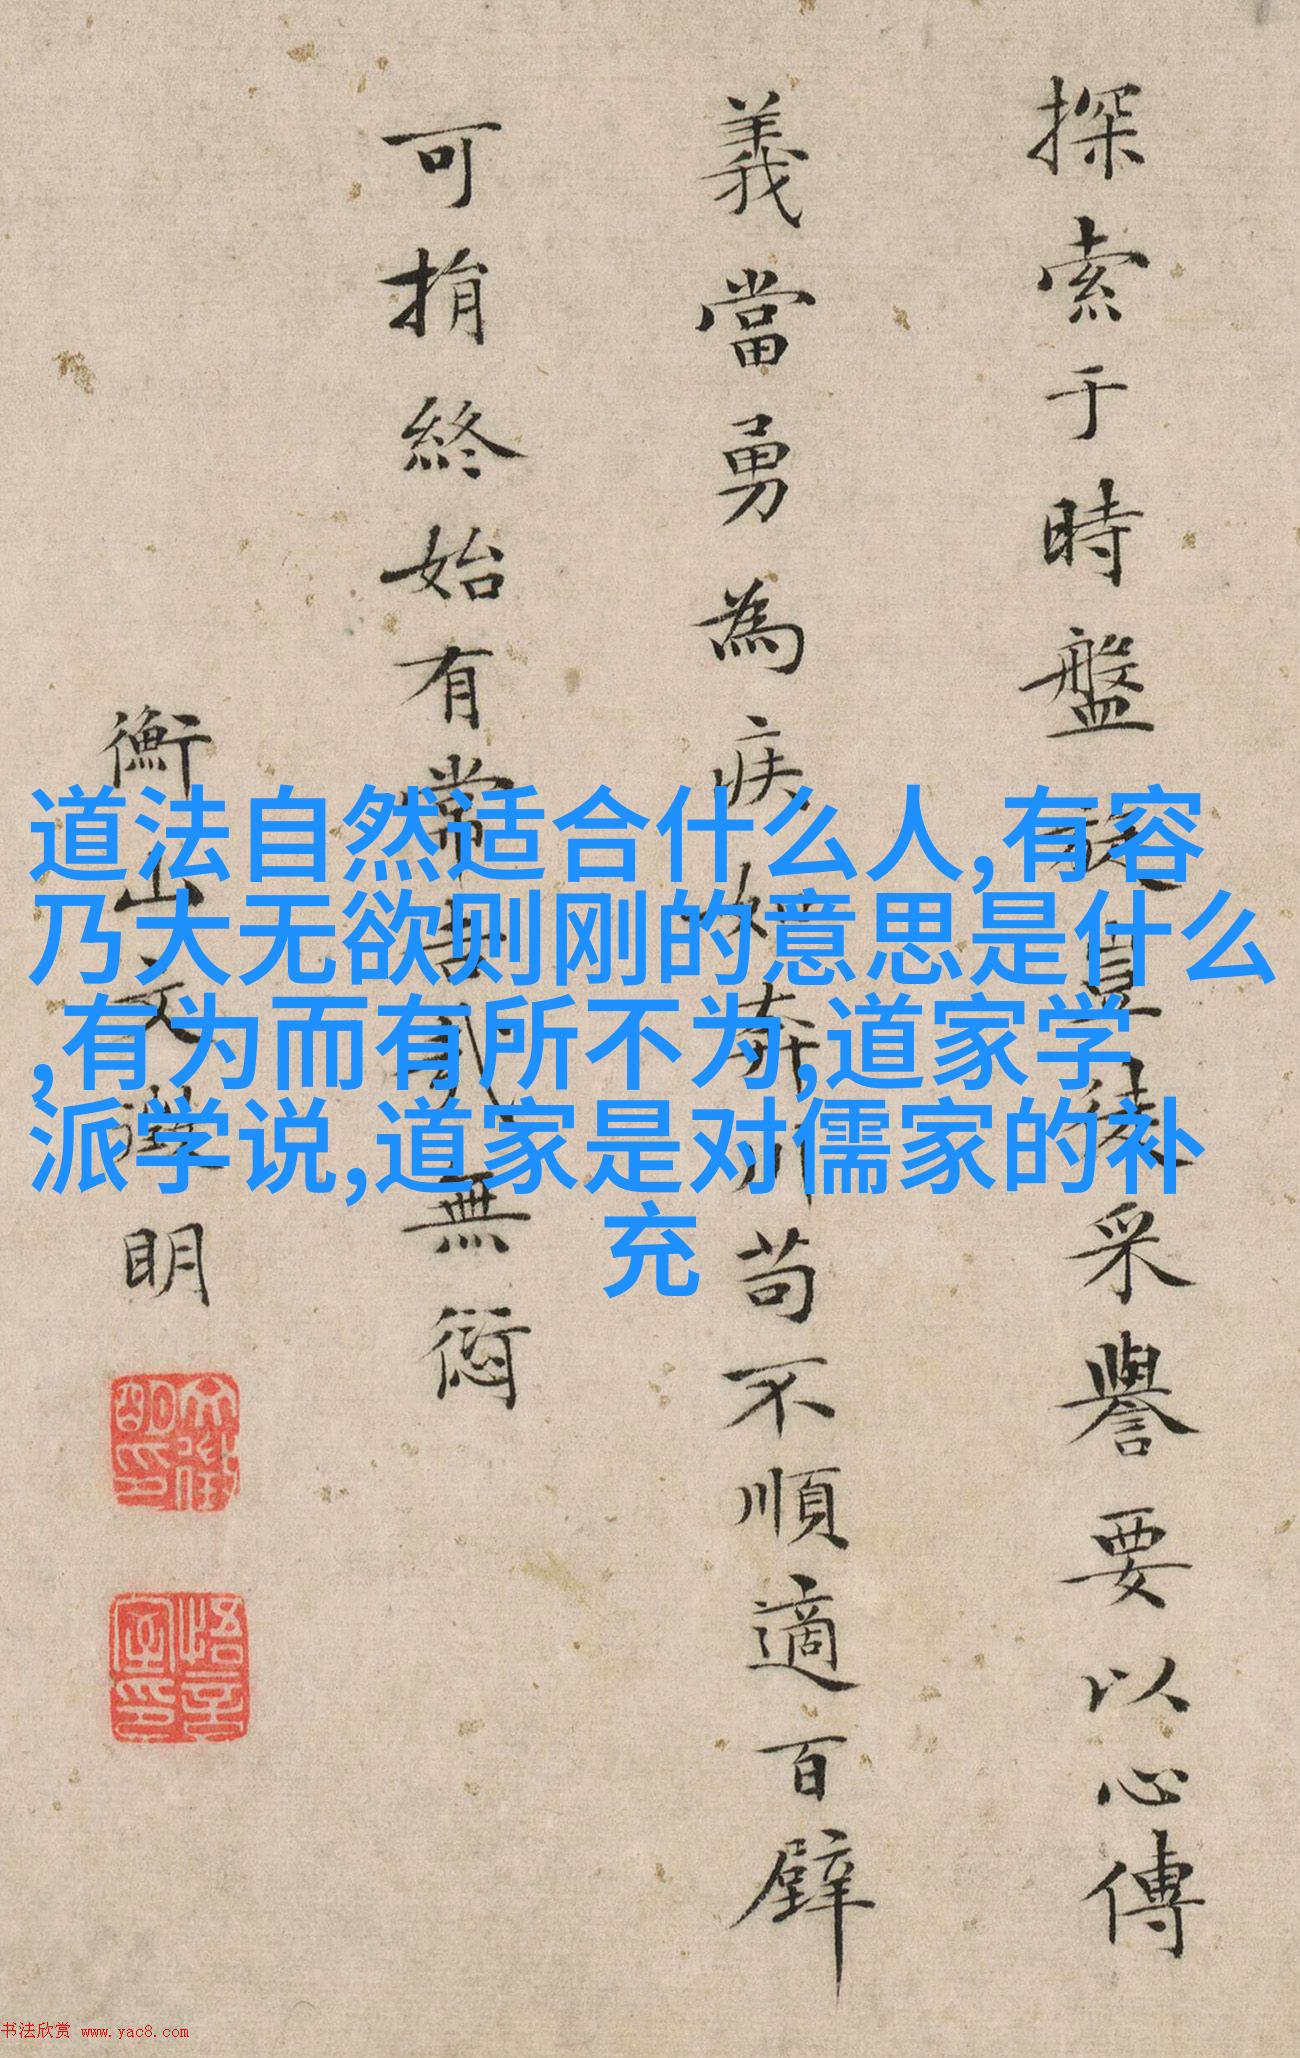 探索于時盤豈徒采譽要以心傳
義當勇為疾如奔川苟不順適百辟
可捐終始有常貳無愆
衡山文徵明
文徵明印
悟言室印
道法自然适合什么人,有容
乃大无欲则刚的意思是什么
,有为而有所不为,道家学
派学说,道家是对儒家的补
充
书法欣赏 www.yac8.com